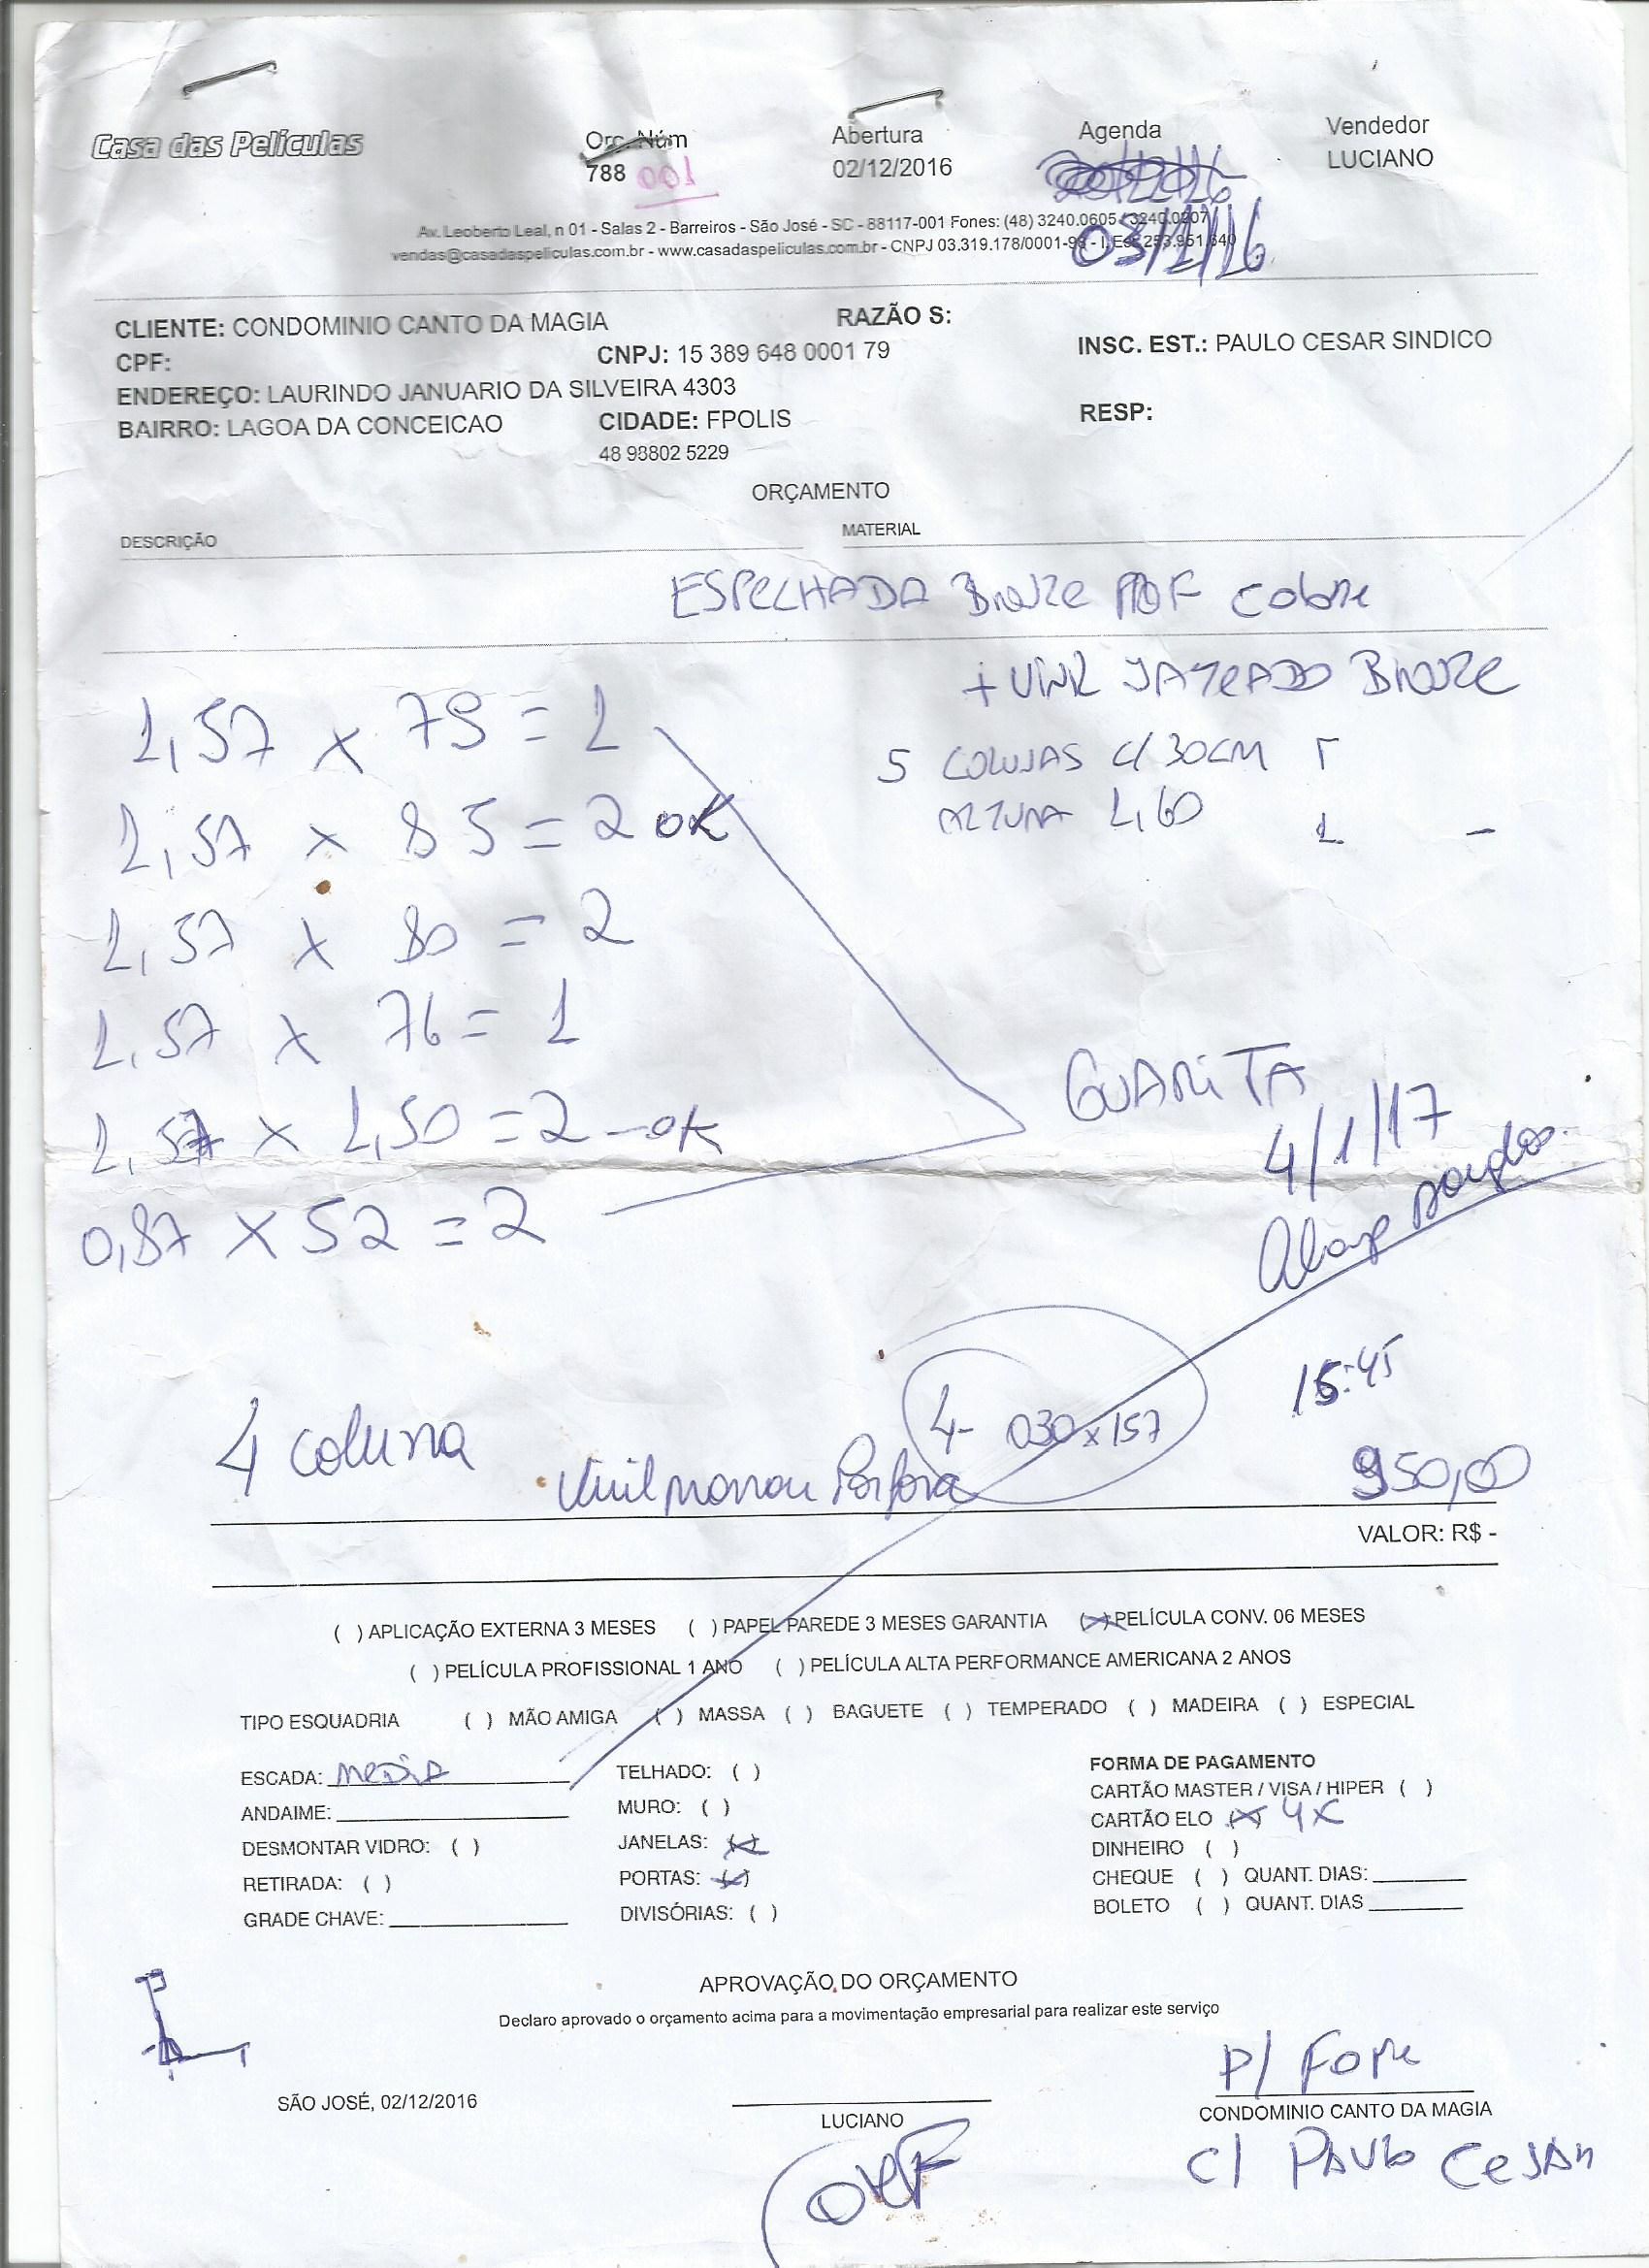 Casa das Películas
Orc. Núm
788 001
Abertura
02/12/2016
Agenda
03/1/16
Vendedor
LUCIANO
Av. Leoberto Leal, n 01 - Salas 2 - Barreiros - São José - SC - 88117-001 Fones: (48) 3240.0605 / 3240.0207
vendas@casadaspeliculas.com.br - www.casadaspeliculas.com.br - CNPJ 03.319.178/0001-98 - I. Est. 253.951.640
CLIENTE: CONDOMINIO CANTO DA MAGIA RAZÃO S:
CPF: CNPJ: 15 389 648 0001 79 INSC. EST.: PAULO CESAR SINDICO
ENDEREÇO: LAURINDO JANUARIO DA SILVEIRA 4303
BAIRRO: LAGOA DA CONCEICAO CIDADE: FPOLIS RESP:
48 98802 5229
ORÇAMENTO
DESCRIÇÃO MATERIAL
ESPELHADA BRONZE cobre
+ VINIL JATEADO BRONZE
1,57 x 79 = 1
5 COLUNAS C/ 30CM
ALTURA 1,60
1,57 x 85 = 2 OK
1,57 x 80 = 2
1,57 x 76 = 1
GUARITA
1,57 x 1,50 = 2 - OK
4/1/17
0,87 x 52 = 2
15:45
4 coluna
4- 030 x 157
Vinil
950,00
VALOR: R$ -
( ) APLICAÇÃO EXTERNA 3 MESES ( ) PAPEL PAREDE 3 MESES GARANTIA (x) PELÍCULA CONV. 06 MESES
( ) PELÍCULA PROFISSIONAL 1 ANO ( ) PELÍCULA ALTA PERFORMANCE AMERICANA 2 ANOS
TIPO ESQUADRIA ( ) MÃO AMIGA ( ) MASSA ( ) BAGUETE ( ) TEMPERADO ( ) MADEIRA ( ) ESPECIAL
ESCADA: MEDIA
ANDAIME:
DESMONTAR VIDRO: ( )
RETIRADA: ( )
GRADE CHAVE:
TELHADO: ( )
MURO: ( )
JANELAS: (x)
PORTAS: (x)
DIVISÓRIAS: ( )
FORMA DE PAGAMENTO
CARTÃO MASTER / VISA / HIPER ( )
CARTÃO ELO (x) 4x
DINHEIRO ( )
CHEQUE ( ) QUANT. DIAS:
BOLETO ( ) QUANT. DIAS
APROVAÇÃO DO ORÇAMENTO
Declaro aprovado o orçamento acima para a movimentação empresarial para realizar este serviço
P/ FONE
SÃO JOSÉ, 02/12/2016
LUCIANO
CONDOMINIO CANTO DA MAGIA
C/ PAULO CESAR